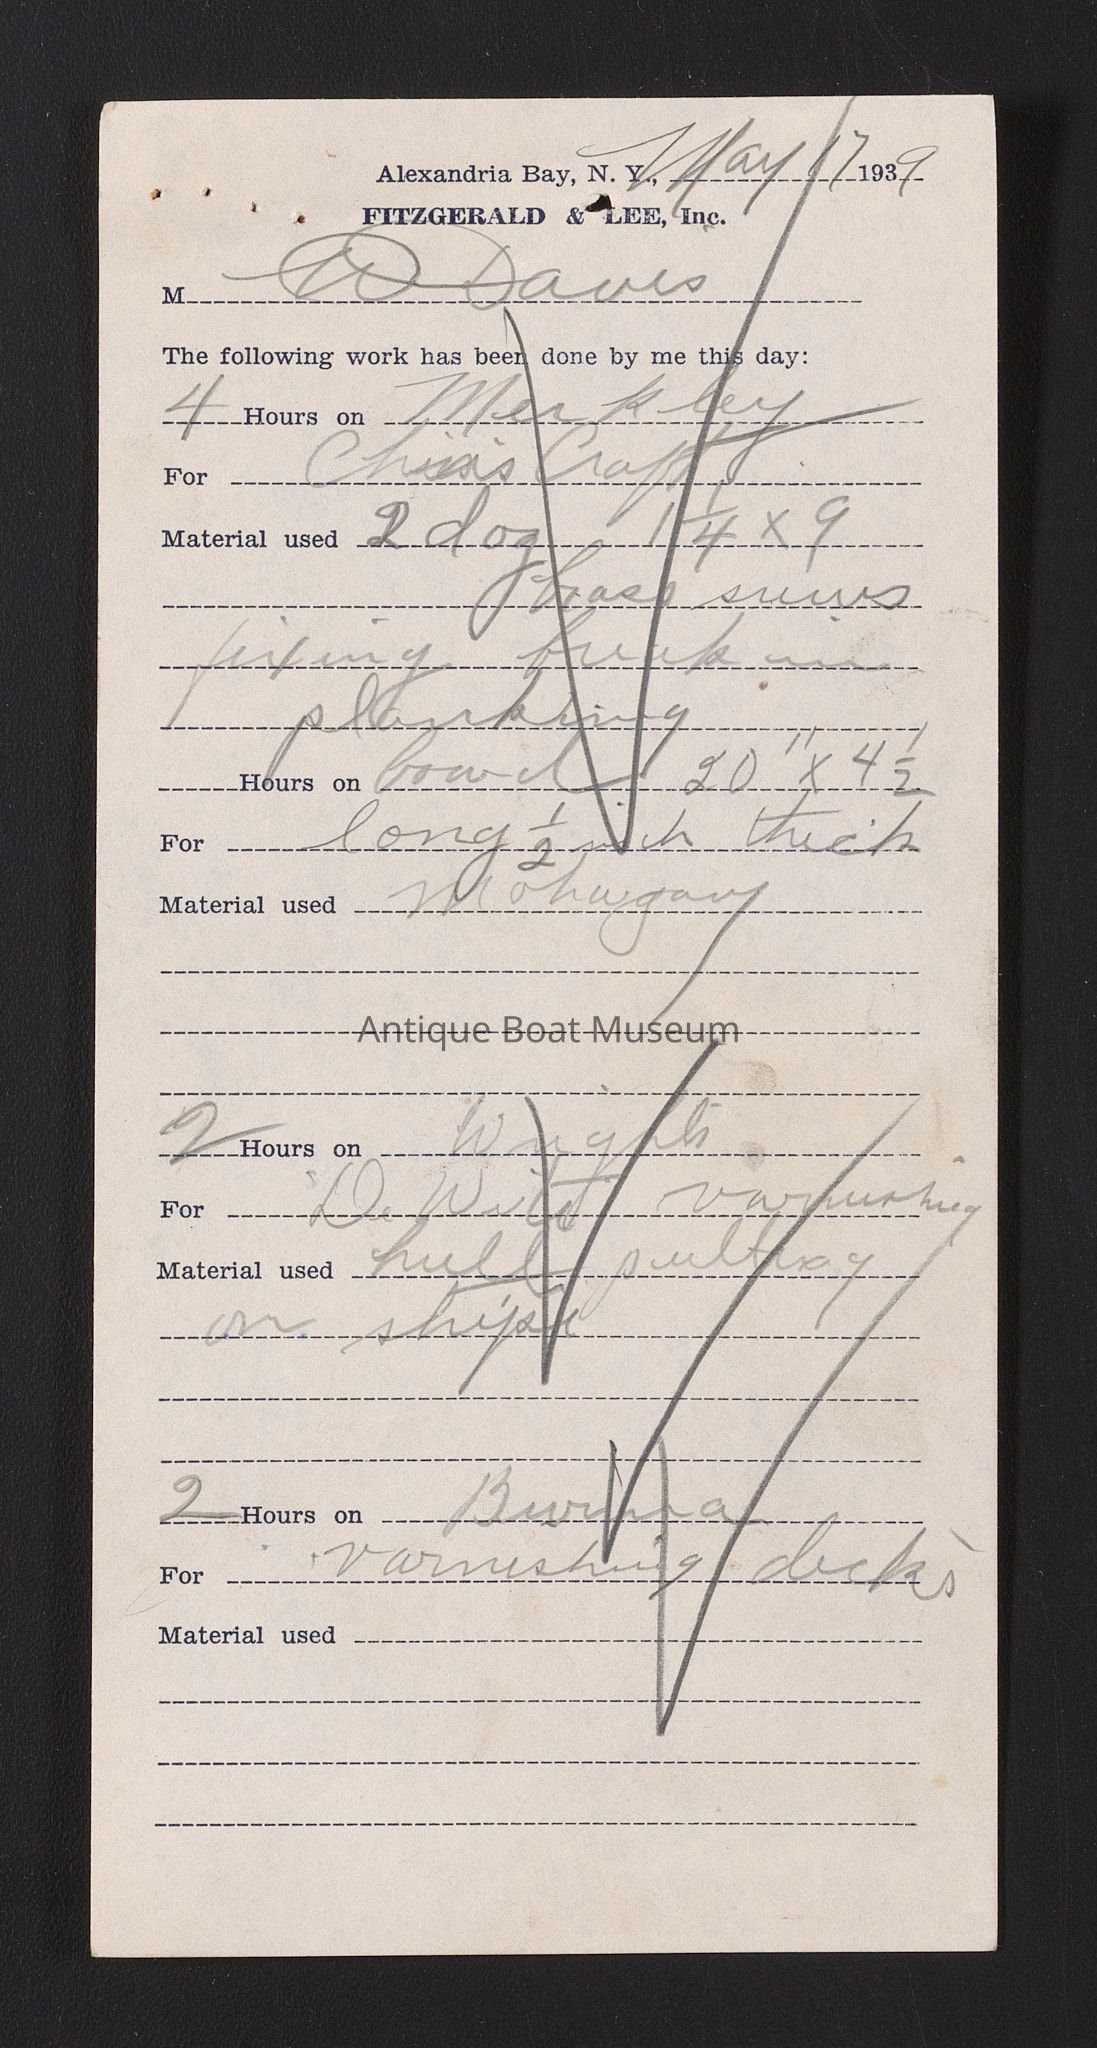 Alexandria Bay, N. Y., May 17 1939
FITZGERALD & LEE, Inc.
M W Davis
The following work has been done by me this day:
4 Hours on Merkley
For Chris Craft
Material used 2 dog 1 1/4 x 9
brass screws
fixing break in
planking
Hours on board 20" x 4 1/2
For long 1/2 inch thick
Material used Mohagany
Antique Boat Museum
2 Hours on Wrights
For De Witt varnishing
Material used hull putting
on stripe
2 Hours on Burma
For varnishing decks
Material used